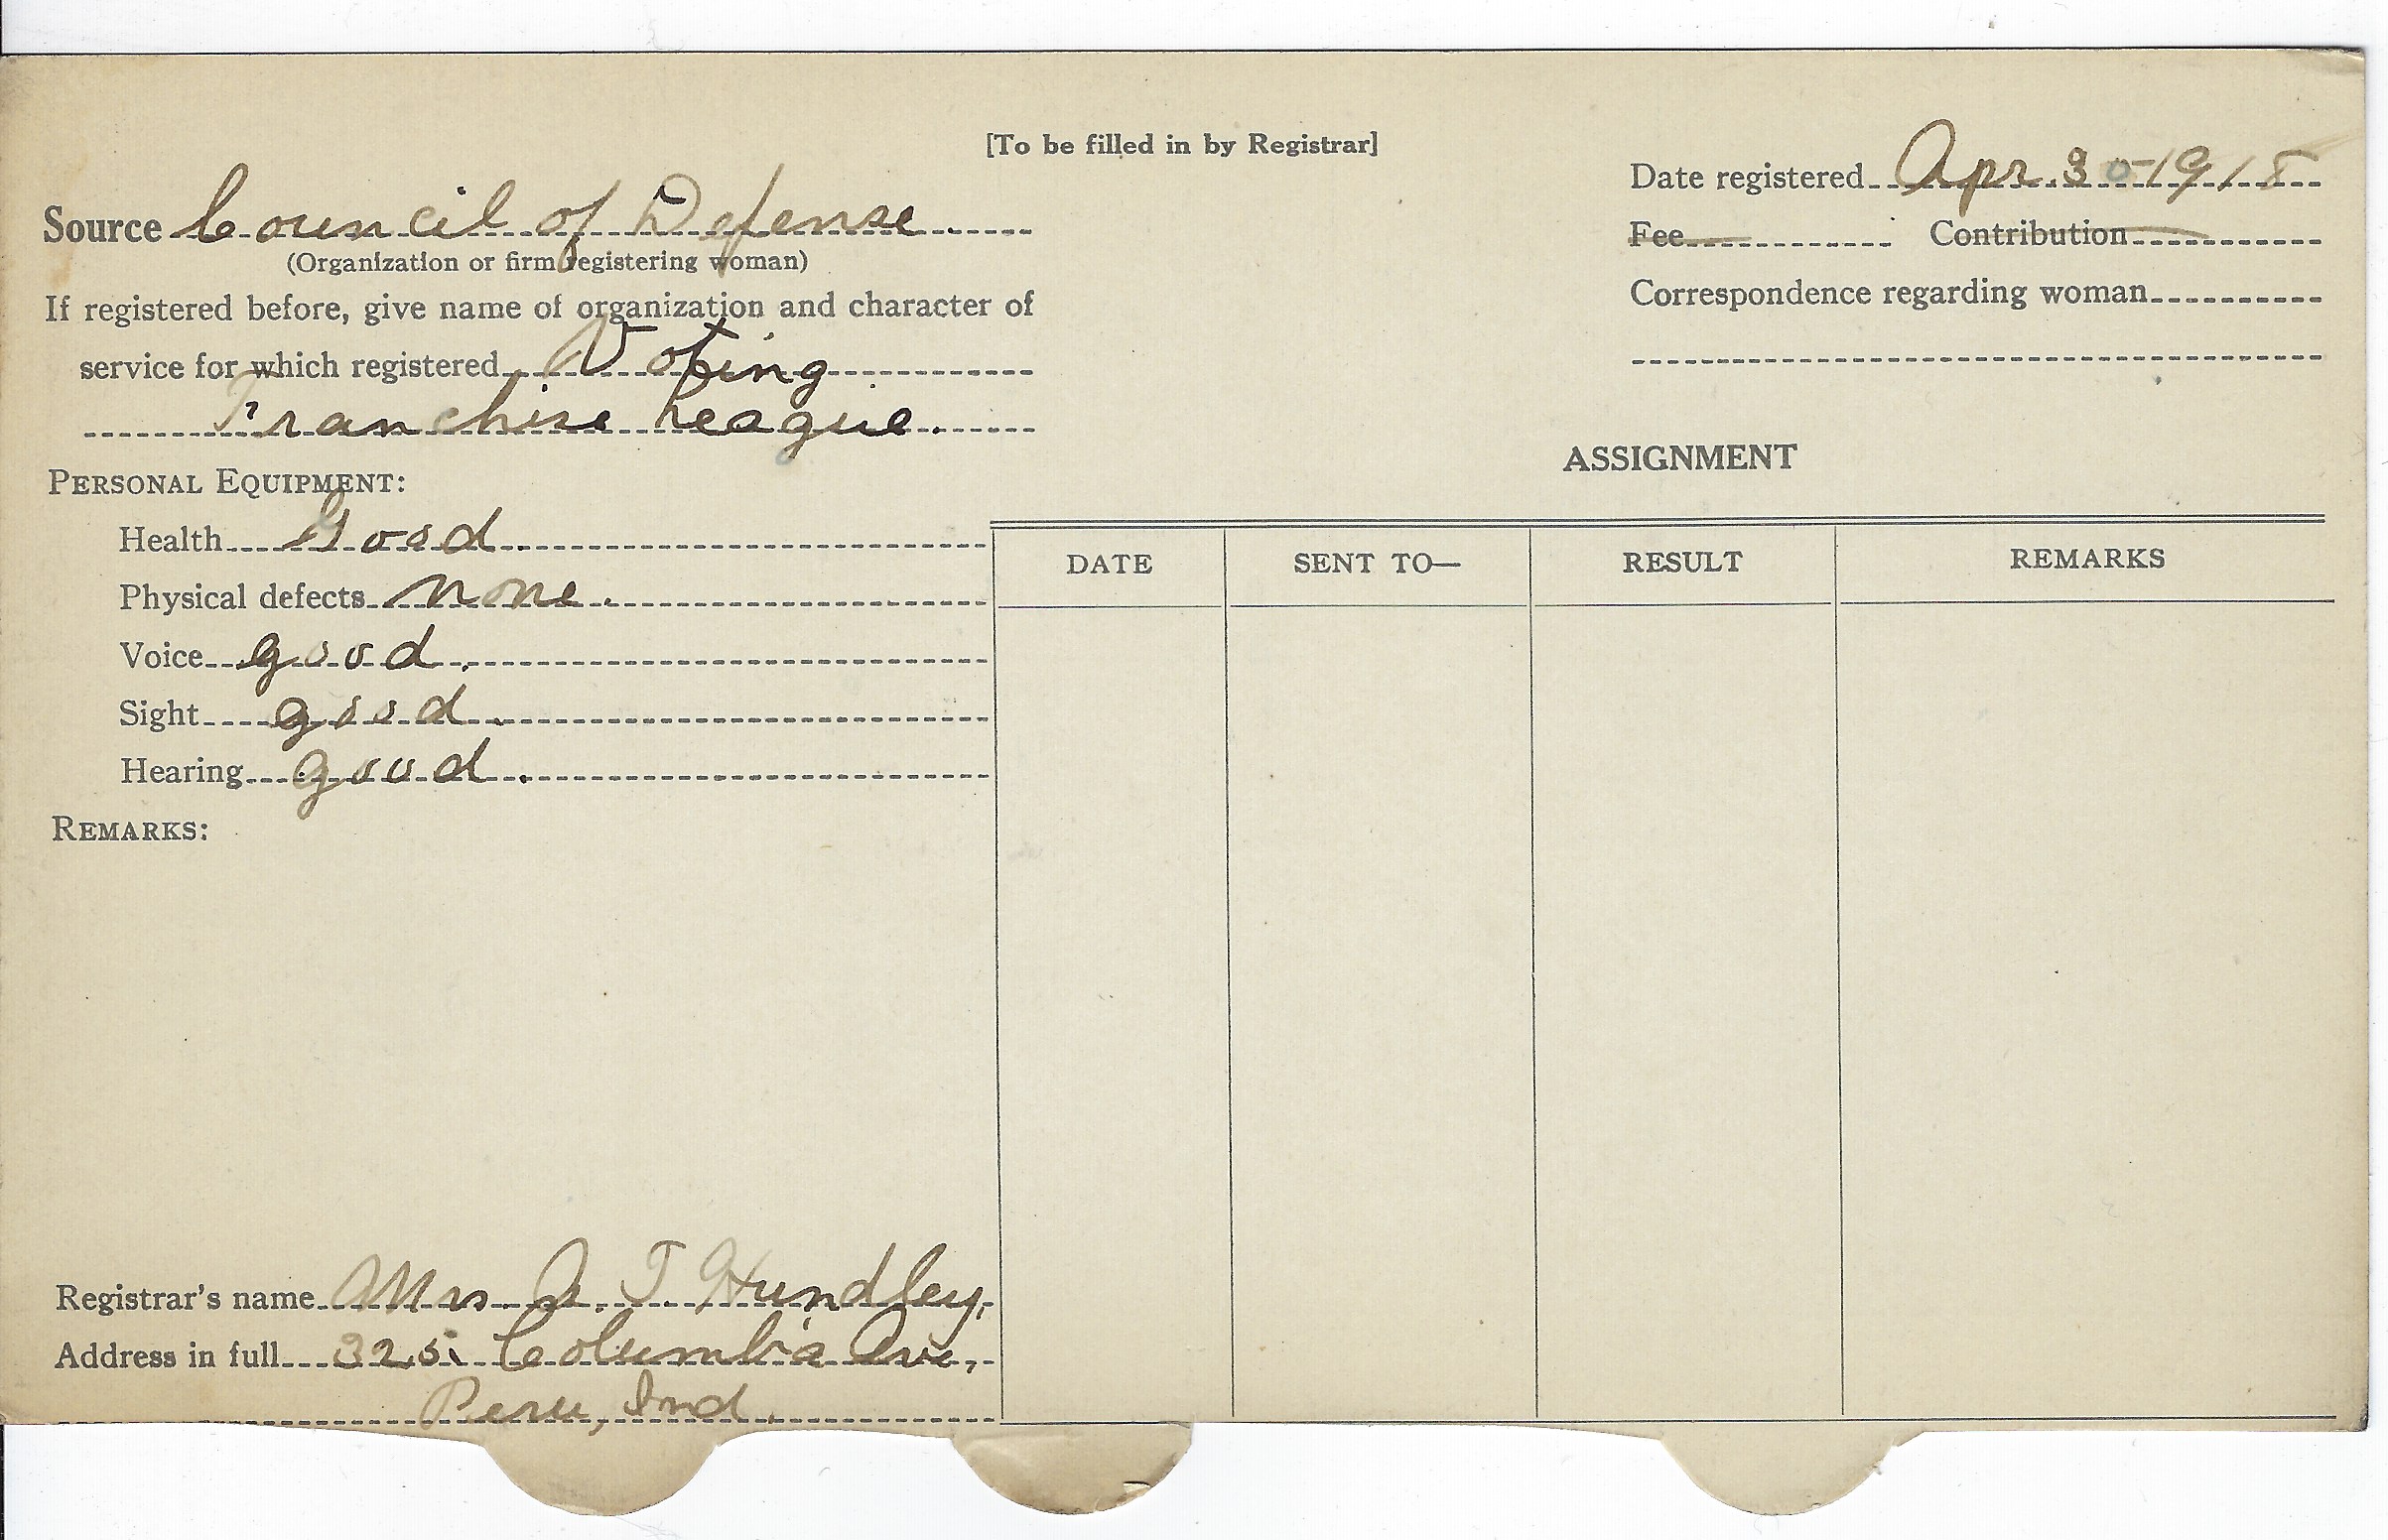 [To be filled in by Registrar]
Date registered Apr. 30-1918
Source Council of Defense.
(Organization or firm registering woman)
Fee Contribution
Correspondence regarding woman
If registered before, give name of organization and character of
service for which registered Voting
Franchise League.
PERSONAL EQUIPMENT:
Health Good.
Physical defects none.
Voice good.
Sight good.
Hearing good.
REMARKS:
ASSIGNMENT
DATE SENT TO— RESULT REMARKS
Registrar's name Mrs. T Hundley,
Address in full 325. Columbia Ave,
Peru, Ind.